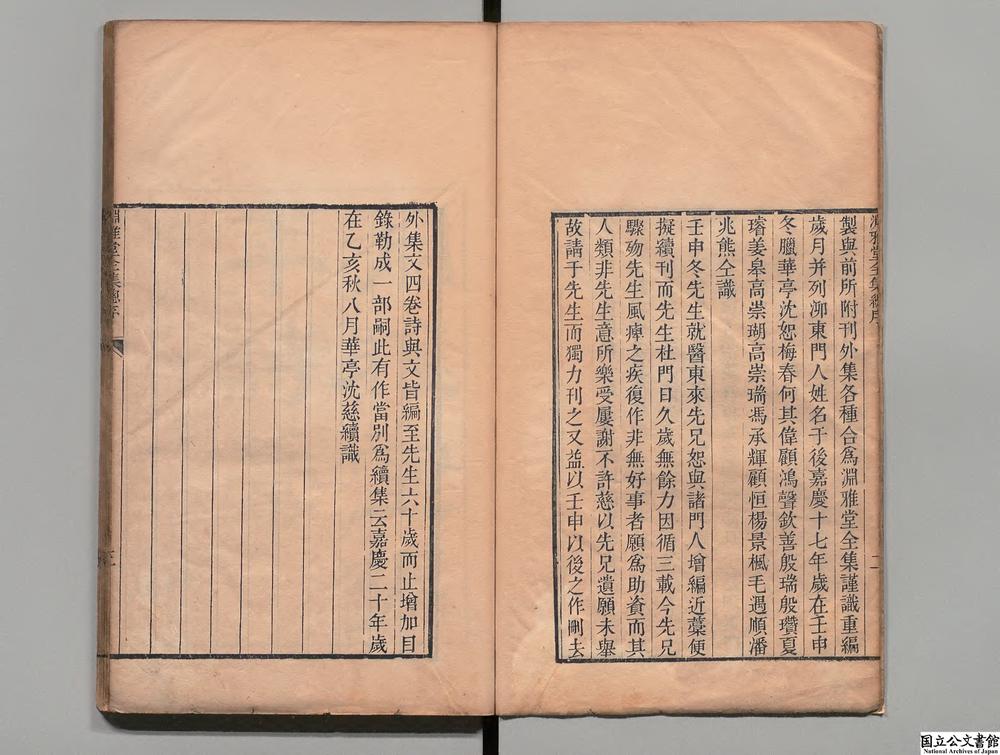 淵雅堂全集總序
二
製與前所附刊外集各種合爲淵雅堂全集謹識重編
歲月并列泖東門人姓名于後嘉慶十七年歲在壬申
冬臘華亭沈恕梅春何其偉顧鴻聲欽善殷瑞殷瓚夏
璿姜皋高崇瑚高崇瑞馮承輝顧恒楊景楓毛遇順潘
兆熊仝識
壬申冬先生就醫東來先兄恕與諸門人增編近藁便
擬續刊而先生杜門日久歲無餘力因循三載今先兄
驟歿先生風痺之疾復作非無好事者願爲助資而其
人類非先生意所樂受屢謝不許慈以先兄遺願未舉
故請于先生而獨力刊之又益以壬申以後之作刪去
外集文四卷詩與文皆編至先生六十歲而止增加目
錄勒成一部嗣此有作當別爲續集云嘉慶二十年歲
在乙亥秋八月華亭沈慈續識
淵雅堂全集總序
三
国立公文書館
National Archives of Japan